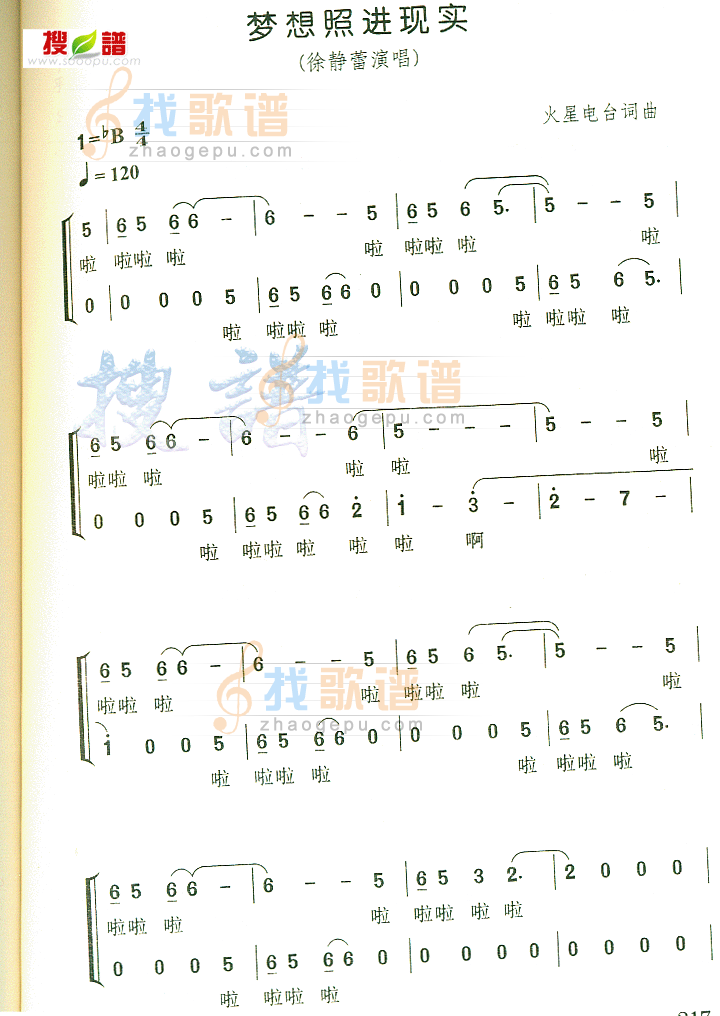 梦想照进现实
搜譜
www.sooopu.com
(徐静蕾演唱)
找歌谱
zhaogepu.com
火星电台词曲
1=♭B 4/4
♩=120
5 | 6 5 6 6 - | 6 - - 5 | 6 5 6 5. | 5 - - 5 |
啦 啦啦 啦 啦 啦啦 啦 啦
0 | 0 0 0 5 | 6 5 6 6 0 | 0 0 0 5 | 6 5 6 5. |
啦 啦啦 啦 啦 啦啦 啦
搜譜
找歌谱
zhaogepu.com
6 5 6 6 - | 6 - - 6 | 5 - - - | 5 - - 5 |
啦啦 啦 啦 啦 啦
0 0 0 5 | 6 5 6 6 2̇ | 1̇ - 3̇ - | 2̇ - 7 - |
啦 啦啦 啦 啦 啦 啊
6 5 6 6 - | 6 - - 5 | 6 5 6 5. | 5 - - 5 |
找歌谱
zhaogepu.com
啦啦 啦 啦 啦啦 啦 啦
1̇ 0 0 5 | 6 5 6 6 0 | 0 0 0 5 | 6 5 6 5. |
啦 啦啦 啦 啦 啦啦 啦
6 5 6 6 - | 6 - - 5 | 6 5 3 2. | 2 0 0 0 |
啦啦 啦 啦 啦啦 啦 啦
0 0 0 5 | 6 5 6 6 0 | 0 0 0 0 | 0 0 0 0 |
啦 啦啦 啦